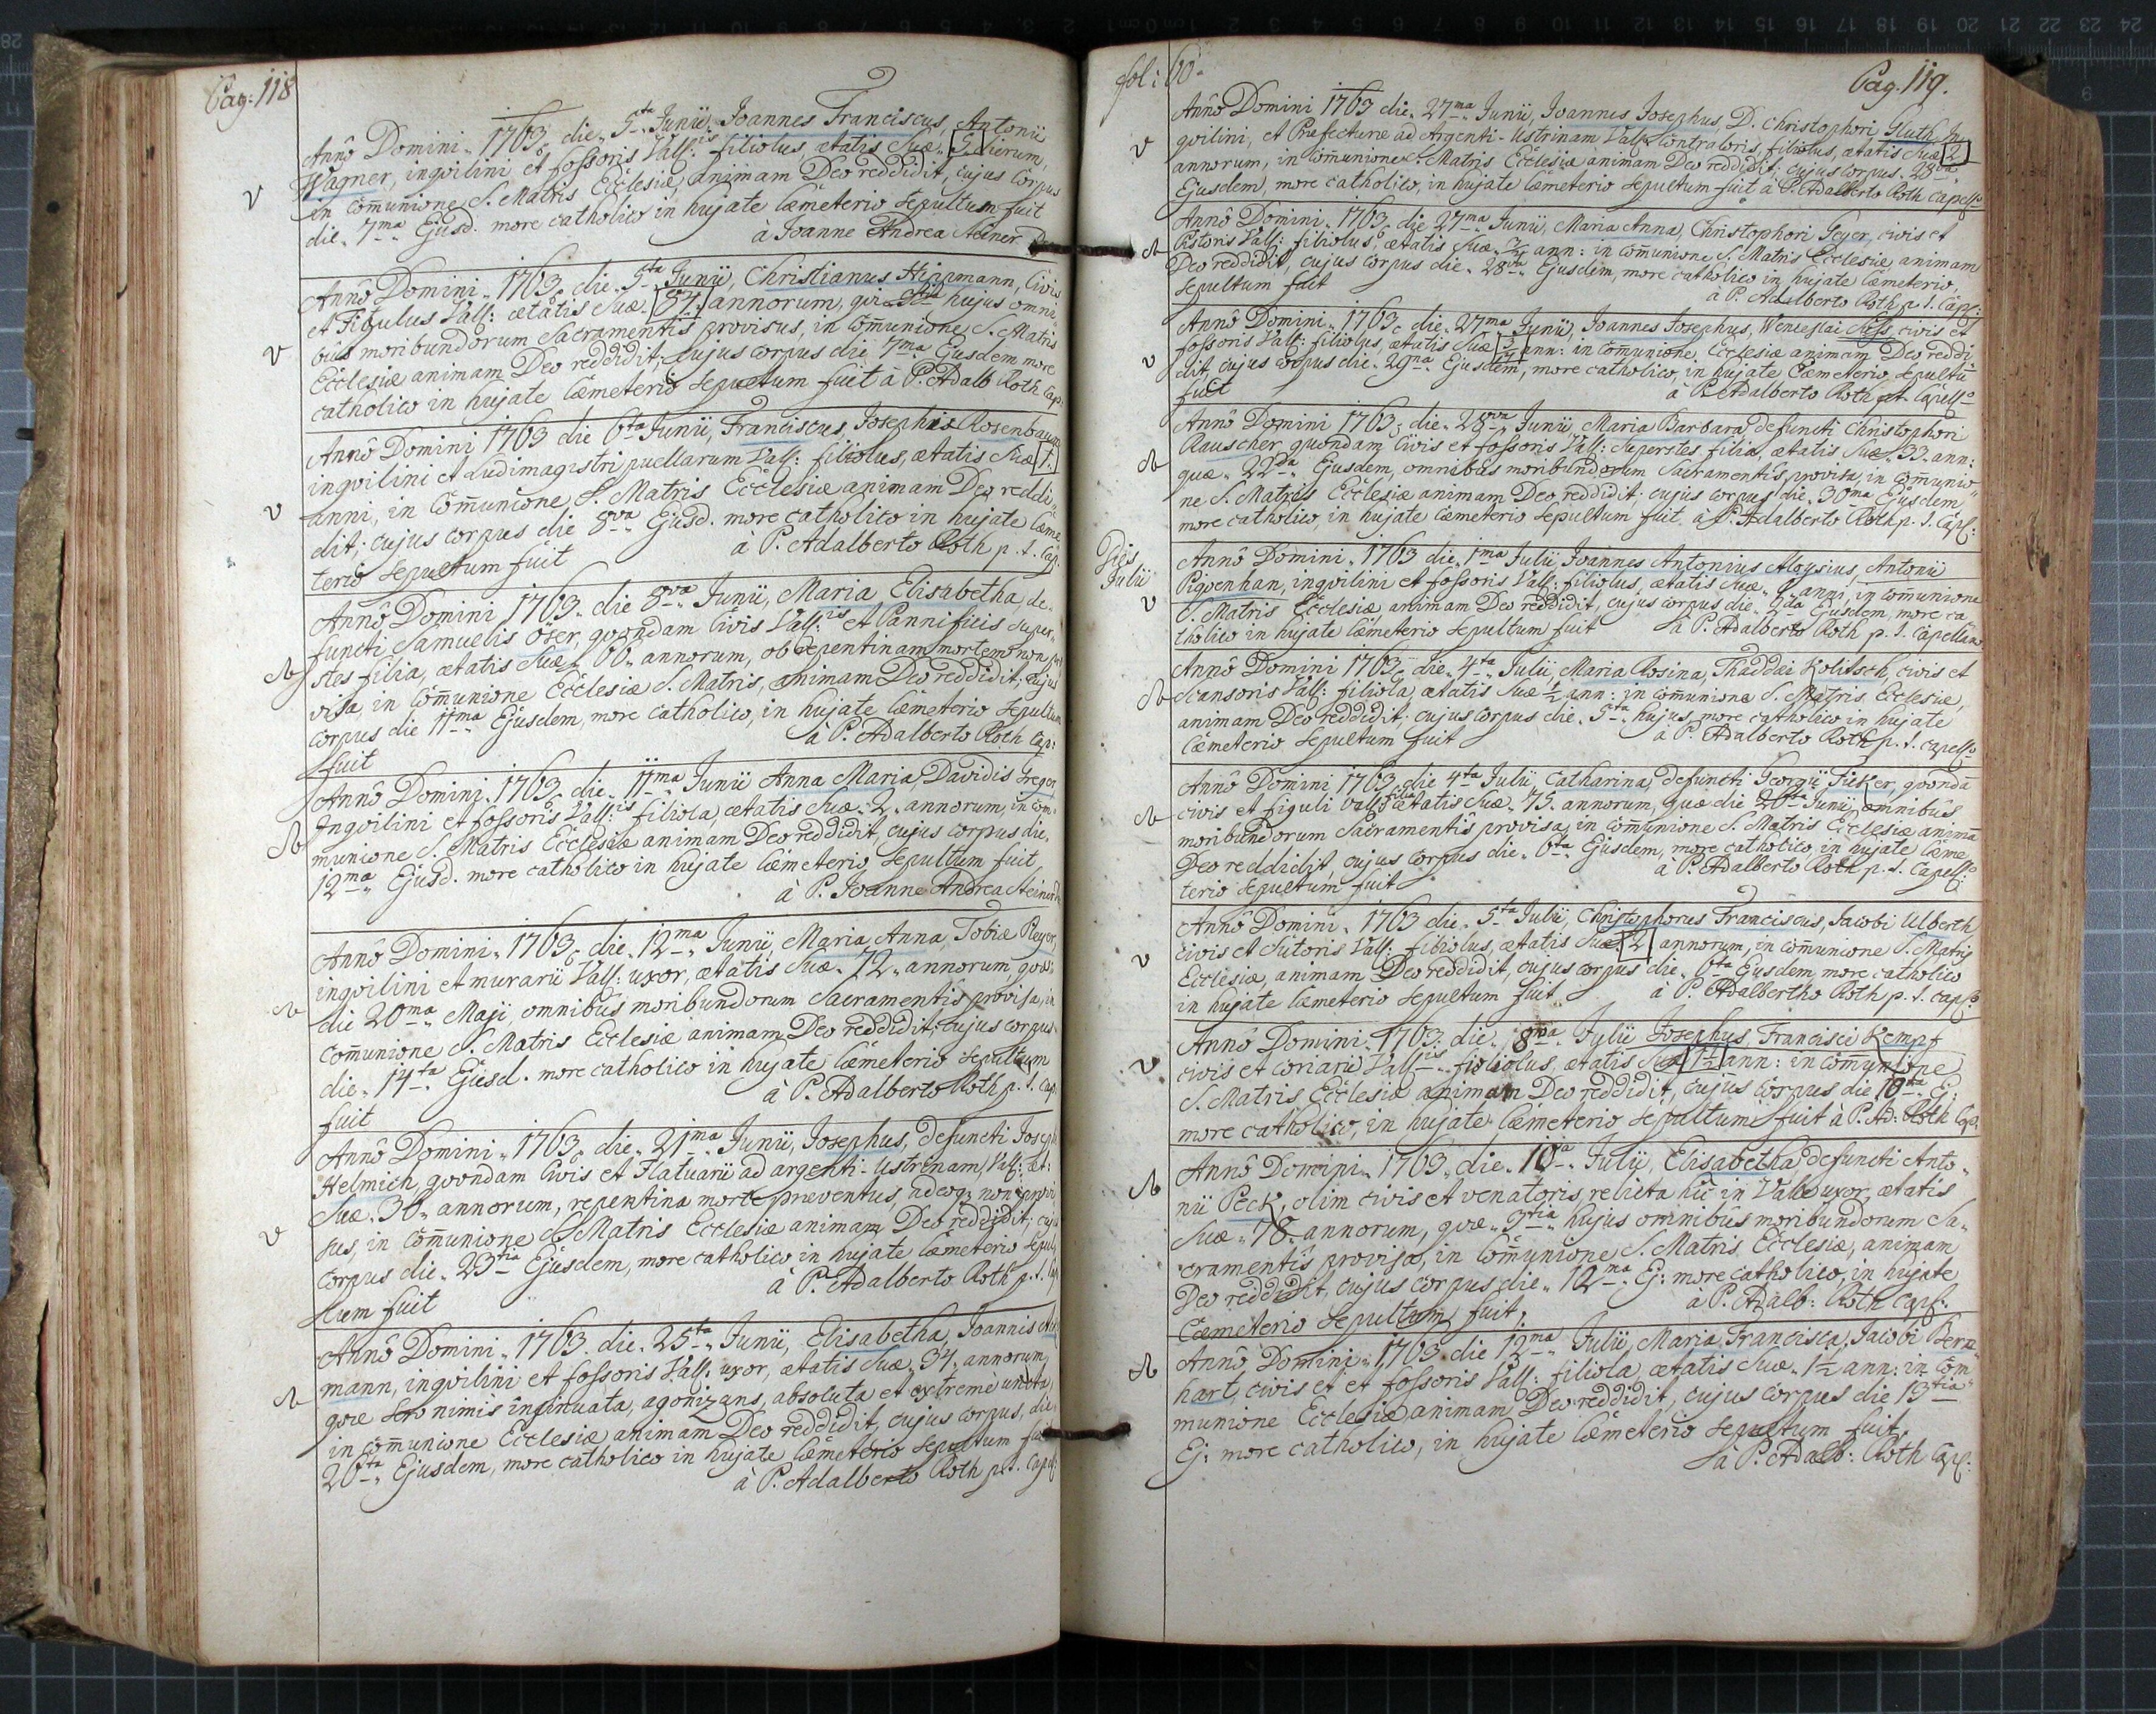 Pag: 118
Anno Domini 1763 die 5ta Junii, Joannes Franciscus, Antonii
Wagner, inqvilini et fossoris Vall:is filiolus, ætatis Suæ 5 dierum,
in Communione S. Matris Ecclesiæ, animam Deo reddidit, cujus corpus
die 7ma Ejusd. more catholico in hujate Cæmeterio Sepultum fuit
à Joanne Andrea
Anno Domini 1763 die 5ta Junii, Christianus Hippmann, Civis
et Figulus Vall: ætatis Suæ annorum, qvi hujus omni
bus moribundorum Sacramentis provisus, in Communione S. Matris
Ecclesiæ animam Deo reddidit; cujus corpus die 7ma Ejusdem more
catholico in hujate Cæmeterio Sepultum fuit à P. Adalb Roth Cap:
Anno Domini 1763 die 6ta Junii, Franciscus, Josephi Rosenbaum
inqvilini et Ludimagistri puellarum Vall: filiolus, ætatis Suæ 1.
anni, in Communione S. Matris Ecclesiæ animam Deo reddi
dit; cujus corpus die 8va Ejusd. more catholico in hujate Cæme
terio Sepultum fuit à P. Adalberto Roth p. t. Cap.
Anno Domini 1763 die 8va Junii, Maria Elisabetha, de
functi Samuelis Öser, qvondam Civis Vall:is et Pannificis Super
stes filia, ætatis Suæ 66 annorum, ob repentinam mortem non pro
visa, in Communione Ecclesiæ S. Matris, animam Deo reddidit; cujus
corpus die 11ma Ejusdem, more catholico, in hujate Cæmeterio Sepultum
fuit à P. Adalberto Roth Cap:
Anno Domini 1763 die 11ma Junii Anna Maria, Davidis Greger
Inqvilini et fossoris Vall:is filiola, ætatis Suæ 2 annorum, in Com
munione S. Matris Ecclesiæ animam Deo reddidit, cujus corpus die
12ma Ejusd. more catholico in hujate Cæmeterio Sepultum fuit
à P. Joanne Andrea
Anno Domini 1763 die 12ma Junii, Maria Anna, Tobiæ Reyer,
inqvilini et murarii Vall: uxor, ætatis Suæ 72 annorum, qvæ
die 20ma Maji omnibus moribundorum Sacramentis provisa, in
Communione S. Matris Ecclesiæ animam Deo reddidit; cujus corpus
die 14ta Ejusd. more catholico in hujate Cæmeterio Sepultum
fuit à P. Adalberto Roth p. t. Cap.
Anno Domini 1763 die 21ma Junii, Josephus, defuncti Joseph
Helmich, qvondam Civis et Flatuarii ad argenti-Ustrinam, Vall: æt:
Suæ 36 annorum, repentina morte præventus, adeoq non provi
sus, in Communione S. Matris Ecclesiæ animam Deo reddidit; cujus
corpus die 23tia Ejusdem, more catholico in hujate Cæmeterio Sepul
tum fuit à P. Adalberto Roth p. t. Cap
Anno Domini 1763 die 25ta Junii, Elisabetha, Joannis
mann, inqvilini et fossoris Vall: uxor, ætatis Suæ 34 annorum,
qvæ Sero nimis insinuata, agonizans, absoluta et extreme uncta,
in Communione Ecclesiæ animam Deo reddidit, cujus corpus, die
26ta Ejusdem, more catholico in hujate Cæmeterio Sepultum fuit
à P. Adalberto Roth p. t. Cap:
fol: 60
Pag. 119.
Anno Domini 1763 die 27ma Junii, Joannes Josephus, D. Christophori Gluth In
qvilini, et Præfecturæ ad Argenti-Ustrinam Vall: Contraloris, filiolus, ætatis Suæ 2
annorum, in Communione S. Matris Ecclesiæ animam Deo reddidit; cujus corpus 28va
Ejusdem, more catholico, in hujate Cæmeterio Sepultum fuit à P. Adalberto Roth Capell
Anno Domini 1763 die 27ma Junii, Maria Anna, Christophori Geyer, civis et
Pistoris Vall: filiolus, ætatis Suæ ann: in Communione S. Matris Ecclesiæ animam
Deo reddidit, cujus corpus die 28va Ejusdem, more catholico in hujate Cæmeterio,
Sepultum fuit à P. Adalberto Roth p. t. Capl:
Anno Domini 1763 die 27ma Junii, Joannes Josephus, Wenceslai Süss, civis et
fossoris Vall: filiolus, ætatis Suæ ann: in Communione, Ecclesiæ animam Deo reddi
dit, cujus corpus die 29na Ejusdem, more catholico, in hujate Cæmeterio Sepultu
fuit à P. Adalberto Roth pt Capell
Anno Domini 1763 die 28va Junii, Maria Barbara, defuncti Christophori
Rauscher, quondam Civis et fossoris Vall: Superstes filia, ætatis Suæ 32 ann:
quæ 22da Ejusdem, omnibus moribundorum Sacramentis provisa, in Communio
ne S. Matris Ecclesiæ animam Deo reddidit; cujus corpus die 30ma Ejusdem
more catholico, in hujate Cæmeterio Sepultum fuit, à P. Adalberto Roth p. t. Capl:
Julii
Anno Domini 1763 die 1ma Julii Joannes Antonius Aloysius, Antonii
Piqvenhan, inqvilini et fossoris Vall: filiolus, ætatis Suæ anni, in Communione
S. Matris Ecclesiæ, animam Deo reddidit, cujus corpus die 2da Ejusdem, more ca
tholico in hujate Cæmeterio Sepultum fuit à P. Adalberto Roth p. t. Capellano
Anno Domini 1763 die 4ta Julii, Maria Rosina, Thaddæi Kolitsch, civis et
Scansoris Vall: filiola, ætatis Suæ 1/2 ann: in Communione S. Matris Ecclesiæ,
animam Deo reddidit; cujus corpus die 5ta hujus, more catholico in hujate
Cæmeterio Sepultum fuit à P. Adalberto Roth p. t. Capell
Anno Domini 1763 die 4ta Julii Catharina, defuncti Georgii Fisker, qvonda
civis et figuli Vall: filia ætatis Suæ 75. annorum, quæ die 26ta Junii, omnibus
moribundorum Sacramentis provisa, in Communione S. Matris Ecclesiæ anima
Deo reddidit, cujus corpus die 6ta Ejusdem, more catholico, in hujate Cæme
terio Sepultum fuit à P. Adalberto Roth p. t. Capell:
Anno Domini 1763 die 5ta Julii, Christophorus Franciscus, Jacobi Ulberth
civis et Sutoris Vall: filiolus, ætatis Suæ 2 annorum, in Communione S. Matris
Ecclesiæ, animam Deo reddidit, cujus corpus die 6ta Ejusdem more catholico
in hujate Cæmeterio Sepultum fuit à P. Adalbertho Roth p. t. Cap
Anno Domini 1763 die 8va Jylii Josephus, Francisci Kempf
civis et coriarii Vall:is filiolus, ætatis Suæ 1 1/2 ann: in Communione
S. Matris Ecclesiæ animam Deo reddidit, cujus corpus die 10ma Ej:
more catholico, in hujate Cæmeterio Sepultum fuit à P. Ad: Roth Cap.
Anno Domini 1763 die 10a Julii, Elisabetha defuncti Anto
nii Peck, olim civis et venatoris, relicta hic in Valle uxor, ætatis
Suæ 78 annorum, qvæ 3tia hujus omnibus moribundorum Sa
cramentis provisa, in Communione S. Matris Ecclesiæ, animam
Deo reddidit, cujus corpus die 12ma Ej: more catholico, in hujate
Cæmeterio Sepultum fuit. à P. Adalb: Roth Capl:
Anno Domini 1763 die 12ma Julii, Maria Francisca, Jacobi Bern
hart, civis et et fossoris Vall: filiola, ætatis Suæ 1 1/2 ann: in Com
munione Ecclesiæ animam Deo reddidit, cujus corpus die 13tia
Ej: more catholico, in hujate Cæmeterio Sepultum fuit,
à P. Adalb: Roth Capl: